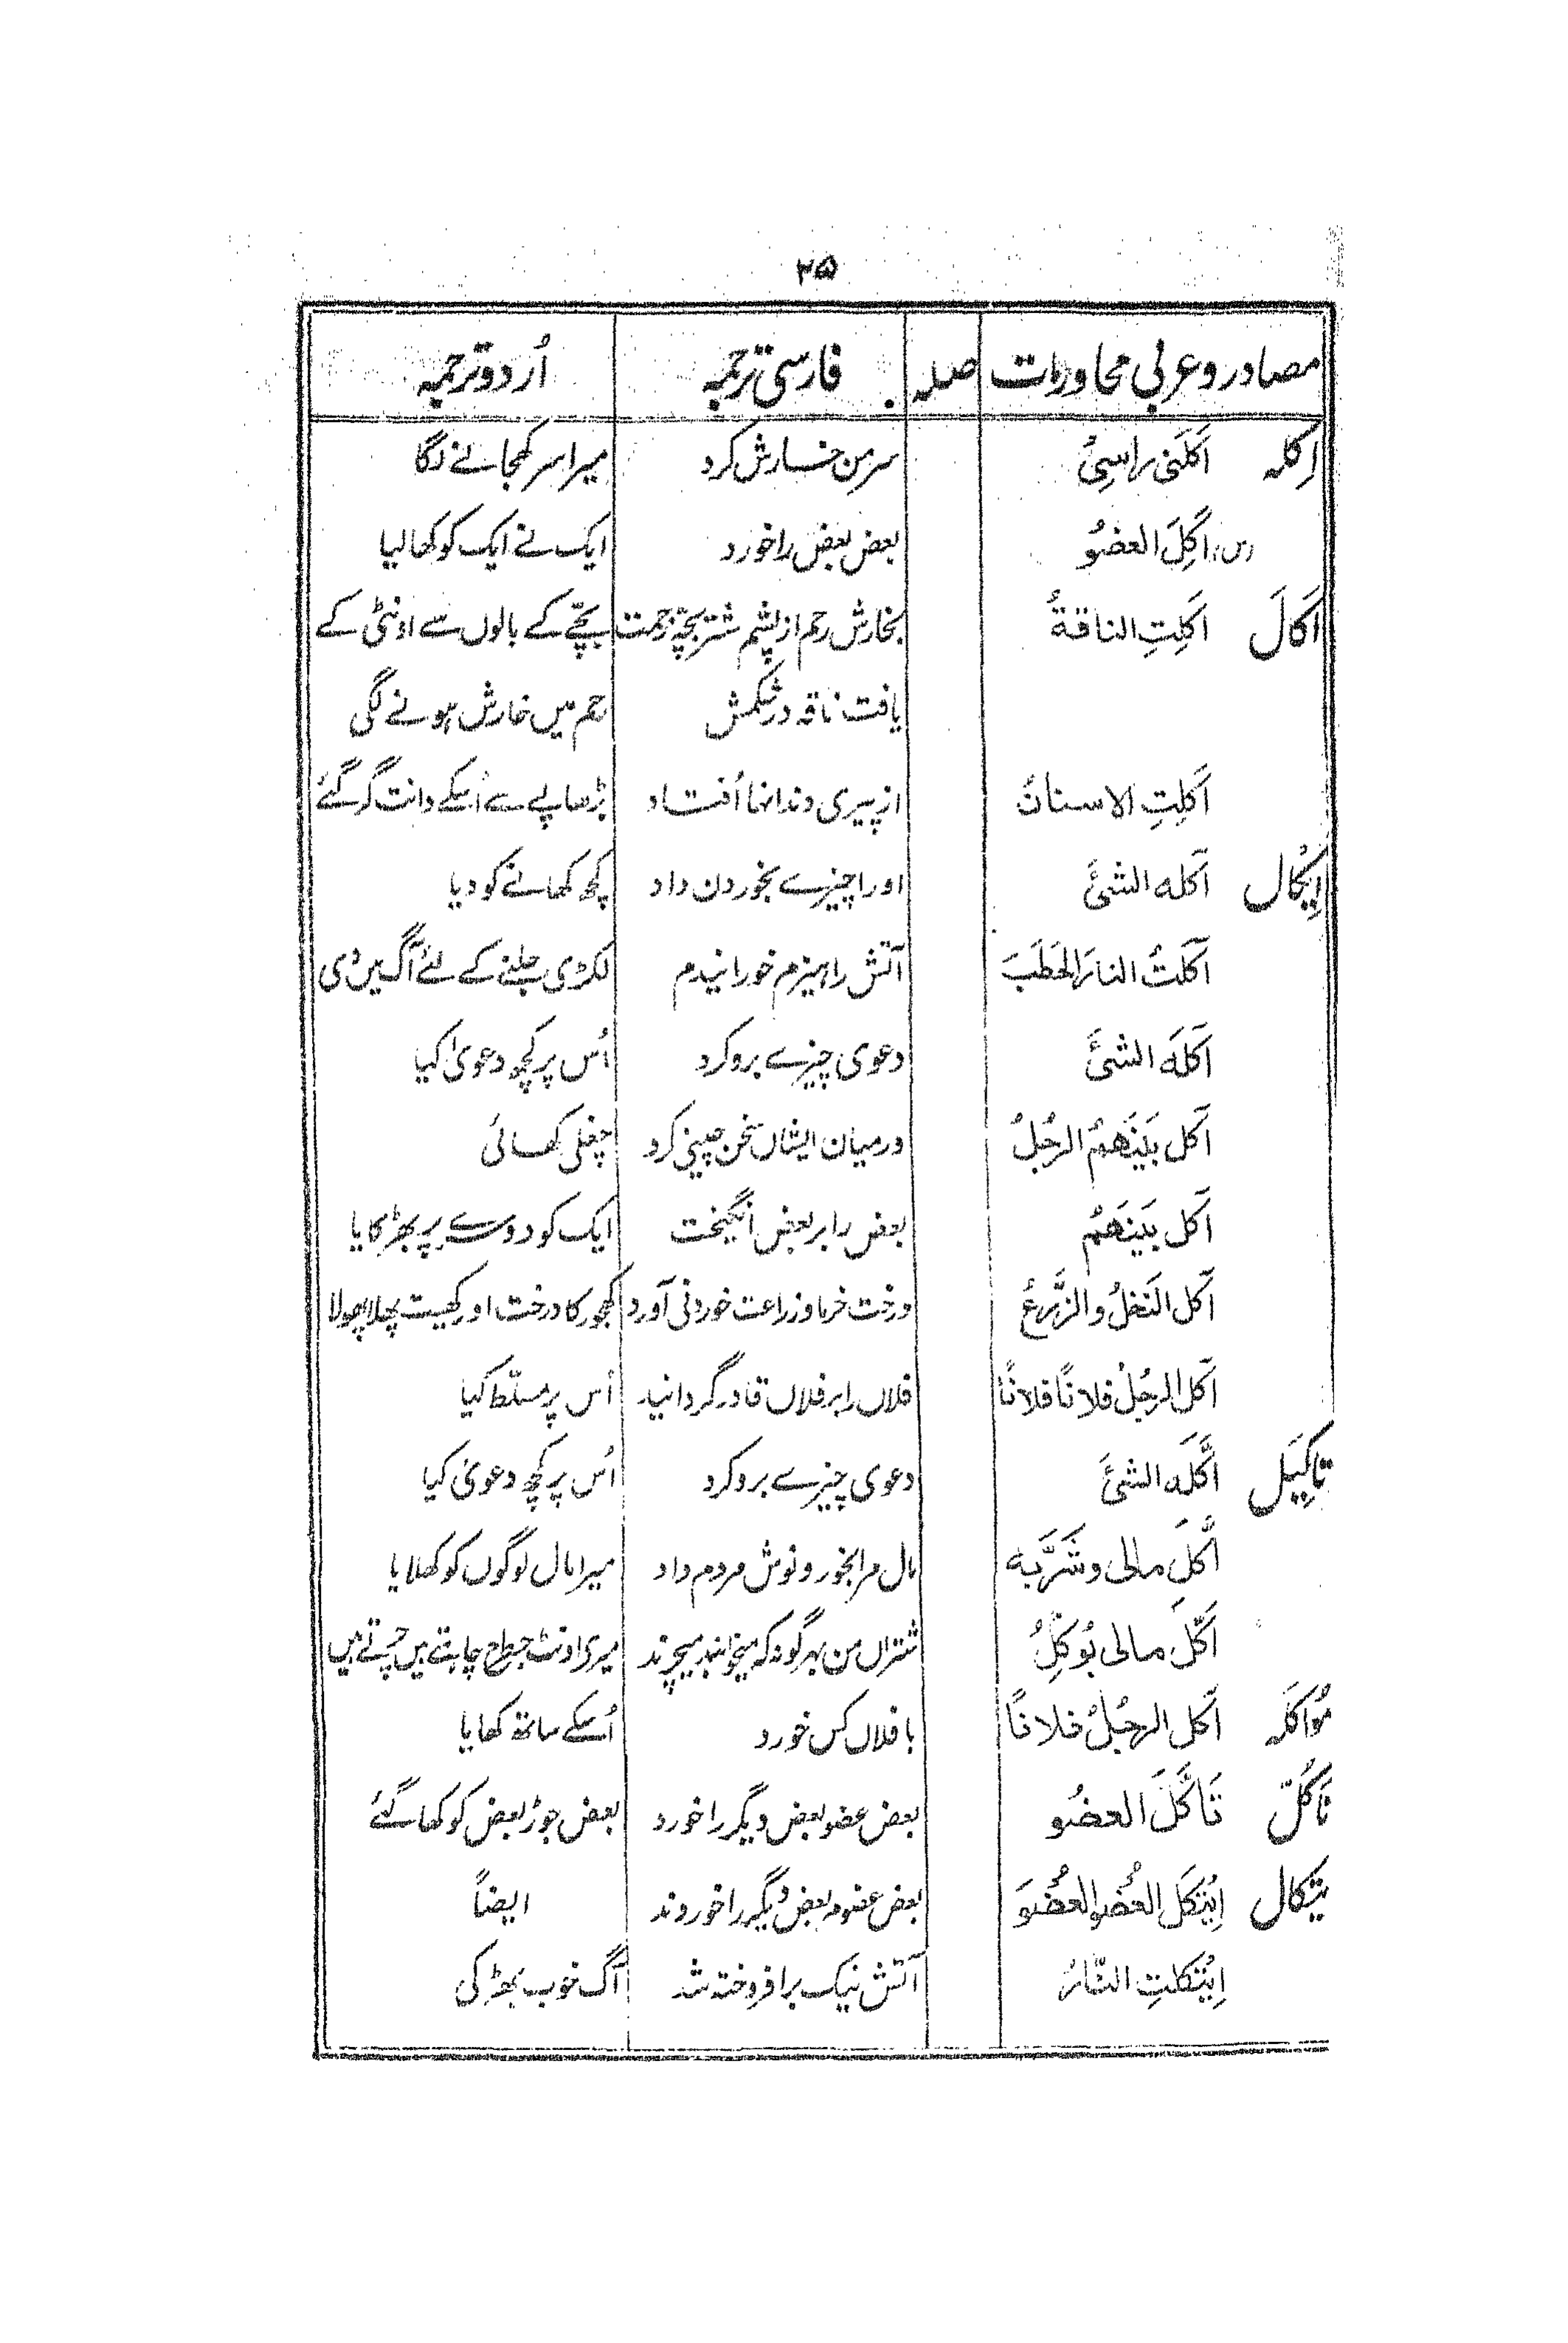 ۲۵
مصادر وعربی محاورات صلہ فارسی ترجمہ اُردو ترجمہ
اِکلہ اَکَلَنی راسِیْ سرمن خارش کرد میرا سر کھجانے لگا
(س) اَکِلَ العضوُ بعض بعض را خورد ایک نے ایک کو کھالیا
اَکَالَ اَکِلَتِ الناقۃُ بخارش رحم از پشم شتر بچہ زحمت بچّے کے بالوں سے اونٹنی کے
یافت ناقہ در شکمش رحم میں خارش ہونے لگی
اَکِلَتِ الاسنانُ از پیری دندانہا اُفتاد بڑھاپے سے اُسکے دانت گر گئے
اِیْکال آکلہ الشئَ اورا چیزے بخوردن داد کچھ کھانے کو دیا
آکلتُ النارَ الحَطَبَ آتش را ہیزم خورانیدم لکڑی جلنے کے لئے آگ میں دی
آکلَہ الشئَ دعوی چیزے بروکرد اُس پر کچھ دعویٰ کیا
آکل بَیْنَھُمْ الرجُلُ درمیان ایشاں سخن چینی کرد چغلی کھائی
آکل بَینَھُمْ بعض را بر بعض انگیخت ایک کو دوسرے پر بھڑکایا
آکل النَخلُ والزَّرعُ درخت خرما وزراعت خوردنی آورد کھجور کا درخت اور کھیت پھلا پھولا
آکل الرجُلُ فلاناً فلاناً فلاں را بر فلاں قادر گردانید اُس پر مسلّط کیا
تاکِیَل اَکَّلَہ الشئَ دعوی چیزے بروکرد اُس پر کچھ دعویٰ کیا
اَکَّلَ مالی وشَرَّبہ مال مرا بخور ونوش مردم داد میرا مال لوگوں کو کھلایا
اَکَّلَ مالی یُوکِلُ شتراں من بہر گونہ کہ میخواہند میچرند میری اونٹ جسطرح چاہتے ہیں چرتے ہیں
مُواکلہ آکل الرجُلُ فلاناً با فلاں کس خورد اُسکے ساتھ کھایا
تَاَکُلّ تَاَکَّلَ العضُو بعض عضو بعض دیگر را خورد بعض جوڑ بعض کو کھا گئے
یتکال اِیْتکَلَ العُضوُ العُضوَ بعض عضو بعض دیگر را خوردند ایضاً
اِیْتکلتِ النّارُ آتش نیک برافروختہ شد آگ خوب بھڑکی